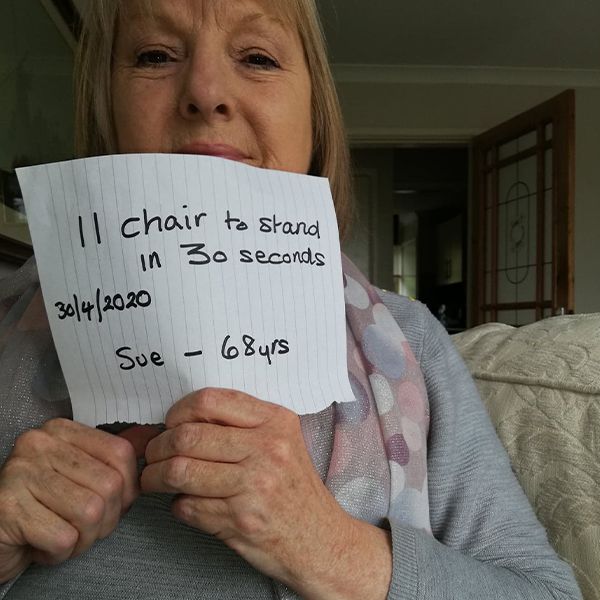 11 chair to stand
in 30 seconds
30/4/2020
Sue - 68yrs